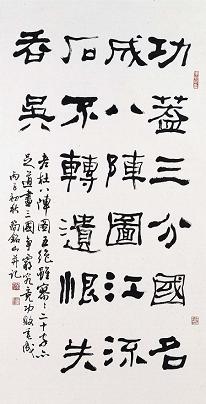 功蓋三分國名
成八陣圖江流
石不轉遺恨失
吞吳
老杜八陣圖五絕雖寥寥二十字亦
足道盡三國爭竟功敗垂成
丙子初秋銘山并記